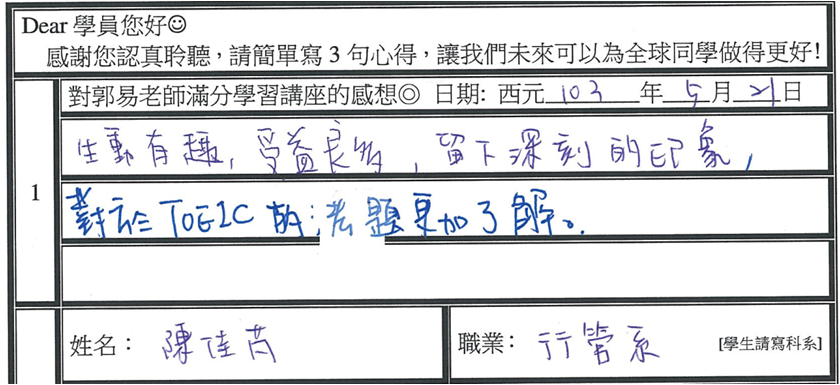 Dear 學員您好☺
感謝您認真聆聽，請簡單寫3句心得，讓我們未來可以為全球同學做得更好!
1
對郭易老師滿分學習講座的感想◎ 日期: 西元 103 年 5 月 21 日
生動有趣，受益良多，留下深刻的印象，
對於TOEIC的考題更加了解。
姓名： 陳佳芮 職業： 行管系 [學生請寫科系]